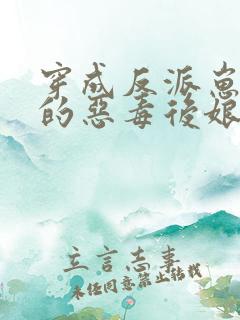 穿成反派崽
的惡毒後娘
立言志事
未任同意禁止转载